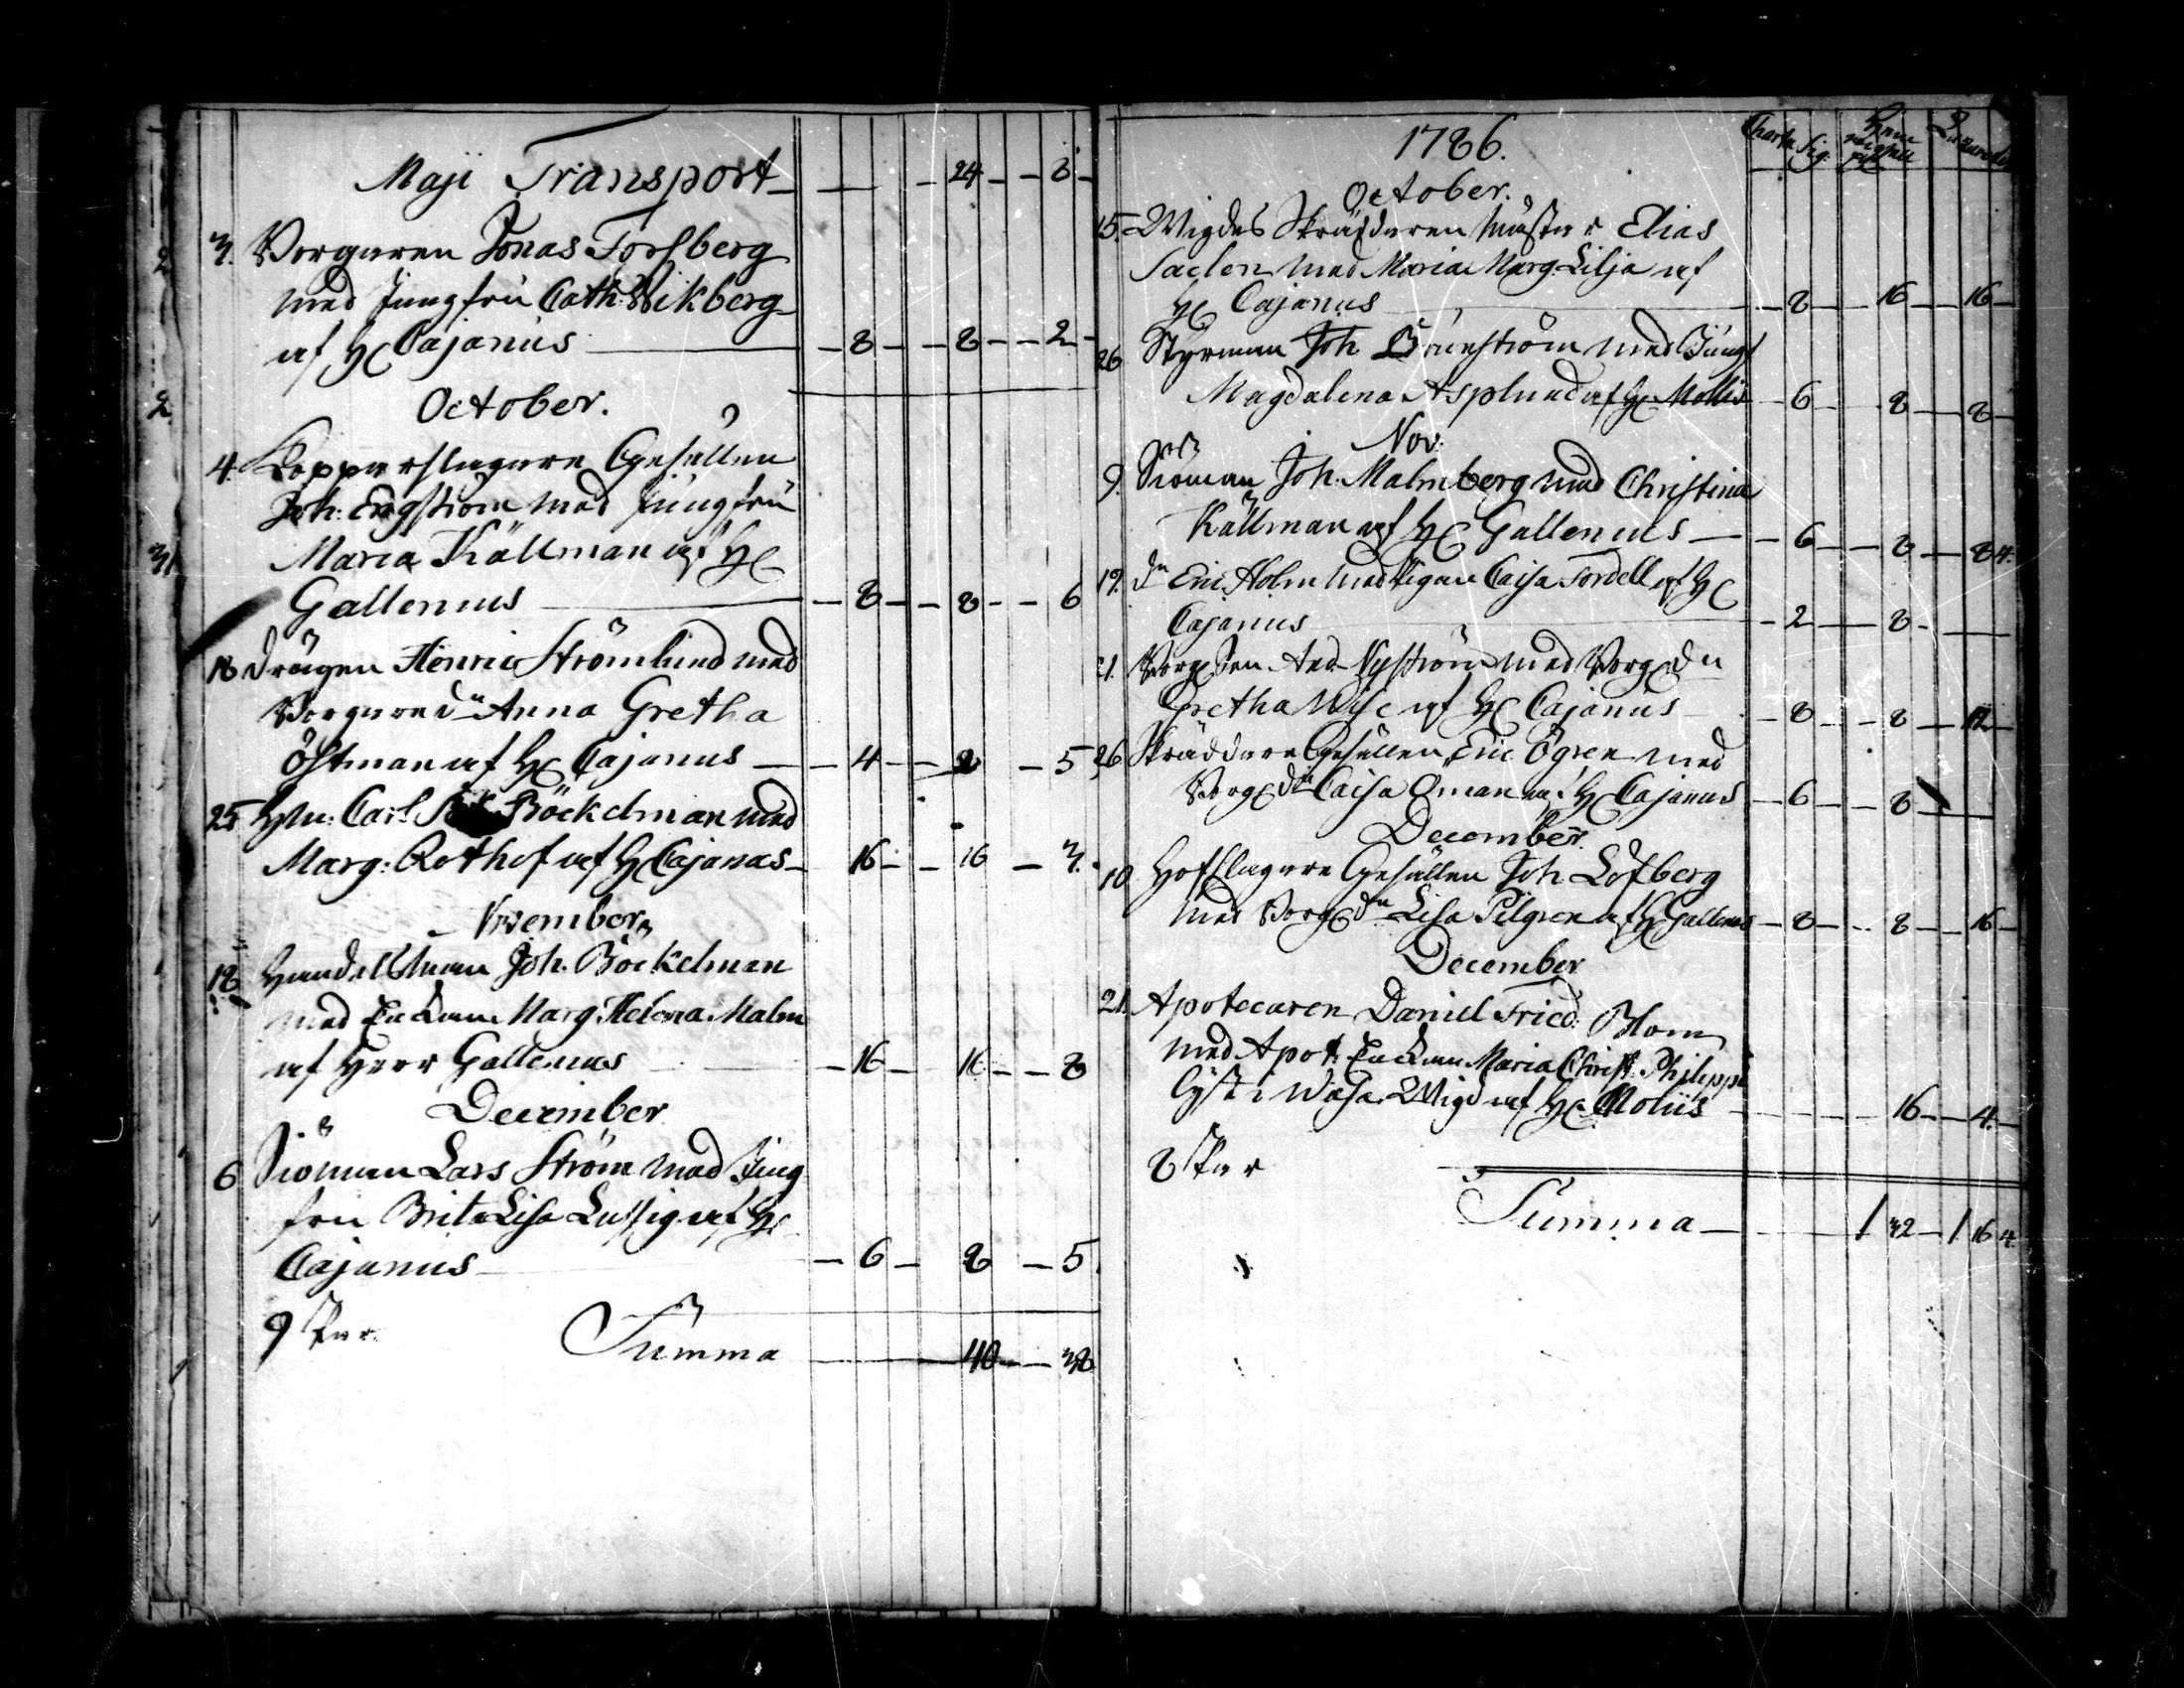 Maji Transport — — 24 — 8 —
3. Borgaren Jonas Forsberg
med Jungfru Cath: Wikberg
af H Cajanus — 8 — 8 — 2 —
October.
4. Kopparslagare Gesällen
Joh: Engström med Jungfru
Maria Källman af H
Gallenius — 8 — 8 — 6
18 Drängen Henric Strömlund med
Borgare dn Anna Gretha
Östman af H Cajanus — 4 — 8 — 5
25 Hn: Carl Böckelman med
Marg: Rothof af H Cajanus — 16 — 16 — 3.
November
18 Handelsman Joh. Böckelman
med Enckan Marg. Helena Malm
af Herr Gallenius — 16 — 16 — 8
December
6 Siöman Lars Ström med Jung
fru Brita Lisa Lustig af H
Cajanus — 6 — 8 — 5.
9 Par.
Summa — 40 — 38
1786.
Charta Sig.
October.
15. Wigdes Skräddaren Mäster Elias
Saclen med Maria Marg. Lilja af
H Cajanus — 8 — 16 — 16 —
26 Styrman Joh. med Jungf
Magdalena Asplund af H Mollis — 6 — 8 — 8 —
Nov:
9. Siöman Joh. Malmberg med Christina
Källman af H Gallenius — 6 — 8 — 8 4.
19. dn Eric Holm med Pigan Caisa Fordell af H
Cajanus — 2 — 8 —
21. Borg Son And. Nyström med Borg dn
Gretha Wise af H Cajanus — 8 — 8 — 12
26 Skräddare Gesällen Eric Ögren med
Borg dn Caisa Öman af H Cajanus — 6 — 8 —
December.
10 Hofslagare Gesällen Joh. Löfberg
med Borg dn Lisa Pilgren af H Gallenius — 8 — 8 — 16 —
December
21. Apotecaren Daniel Fried: Blom
med Apot: Enckan Maria Christ. Philippi
i Wasa Wigd af H. Moliis — 16 — 4. —
8 Par
Summa — 1 32 — 1 16 4.